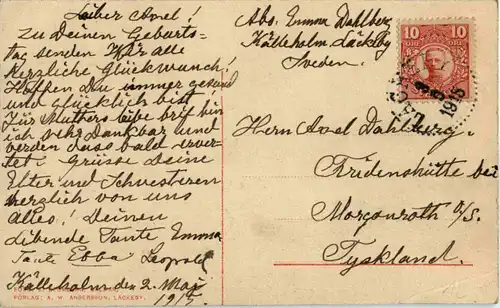 Lieber Axel!
Zu Deinen Geburts-
tag senden Wir alle
Herzliche Glückwunch!
Hoffen Du immer gesund
und Glücklich bist
Für Mutters libe brif bin
ich sehr Dankbar und
werden dass bald erwer
tet. Grüsse Deine
Elter und Schwesteren
herzlich von uns
alles! Deinen
libende Tante Emma
Tante Ebba Leopold
Källeholm den 2. Mai
1915
FÖRLAG: A. W. ANDERSRUN, LÄCKEBY.
Abs. Emma Dahlberg
Källeholm, Läckeby
Sveden.
10 10
ÖRE ÖRE
1915
Herrn Axel Dahlberg
Fridenshütte bei
Morgenroth o/s.
Tyskland.